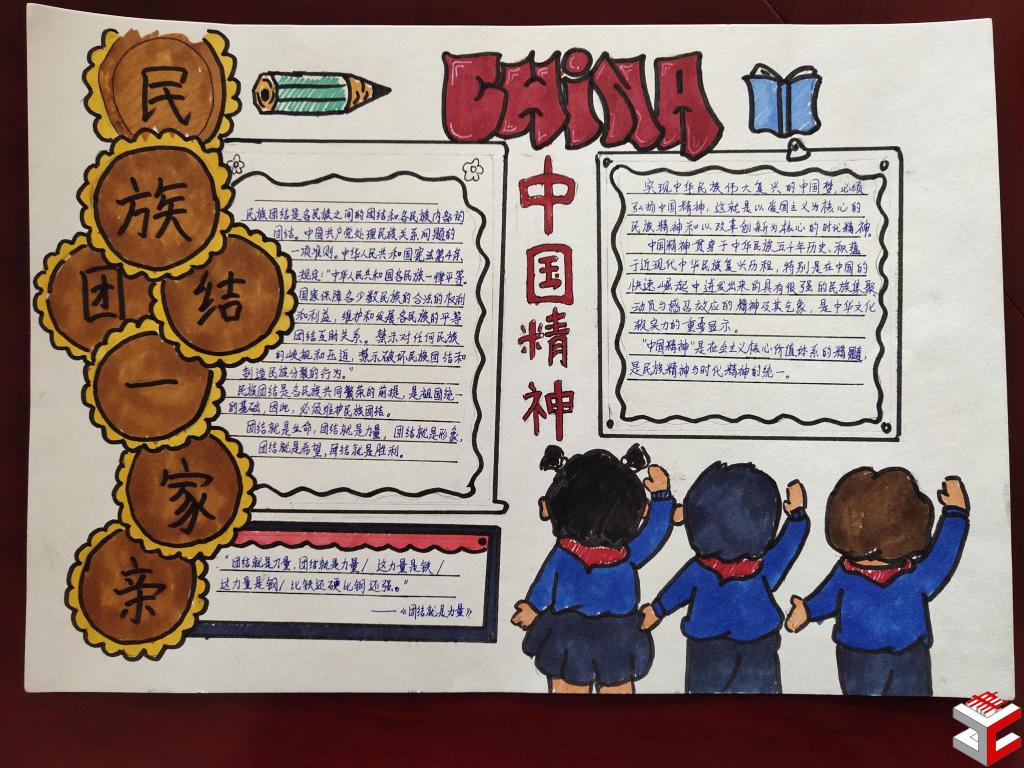 民
族
团
结
一
家
亲
CHiNA
中
国
精
神
民族团结是各民族之间的团结和各民族内部的
团结。中国共产党处理民族关系问题的
一项准则。中华人民共和国宪法第4条
规定:“中华人民共和国各民族一律平等。
国家保障各少数民族的合法的权利
和利益,维护和发展各民族的平等
团结互助关系。禁示对任何民族
的岐视和压迫,禁示破坏民族团结和
制造民族分裂的行为。”
民族团结是各民族共同繁荣的前提,是祖国统一
的基础,因此,必须维护民族团结。
团结就是生命,团结就是力量,团结就是形象,
团结就是希望,团结就是胜利。
“团结就是力量,团结就是力量/ 这力量是铁/
这力量是钢/ 比铁还硬比钢还强。”
——《团结就是力量》
实现中华民族伟大复兴的中国梦,必须
弘扬中国精神,这就是以爱国主义为核心的
民族精神和以改革创新为核心的时代精神。
中国精神贯穿于中华民族五千年历史、积蕴
于近现代中华民族复兴历程,特别是在中国的
快速崛起中迸发出来的具有很强的民族集聚
动员与感召效应的精神及其气象,是中华文化
软实力的重要显示。
“中国精神”是社会主义核心价值体系的精髓,
是民族精神与时代精神的统一。